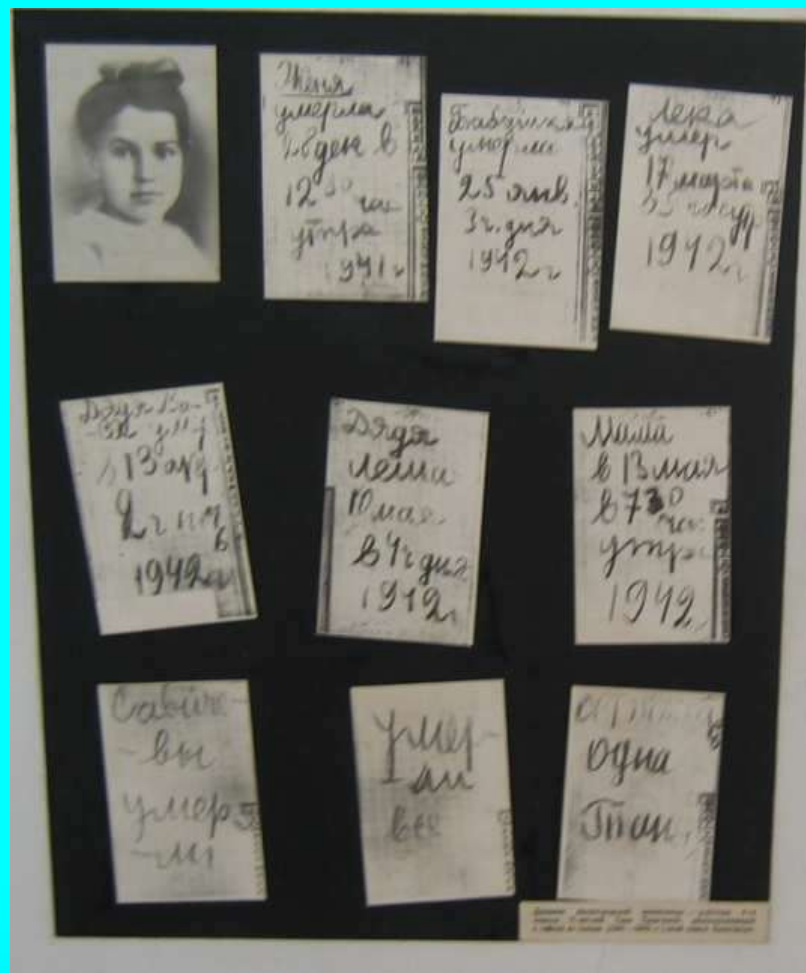 Женя
умерла
28 дек в
12 30 час
утра
1941 г
Бабушка
умерла
25 янв.
3 ч. дня
1942 г
Лека
умер
17 марта
в 5 час утр
1942 г
Дядя Ва-
ся умер
в 13 апр
2 ч ноч
1942 г
Дядя
Леша
10 мая
в 4 ч дня
1942 г
Мама
в 13 мая
в 7 30 час
утра
1942
Савиче-
-вы
умер
-ли
умер-
-ли
все
одна
Таня